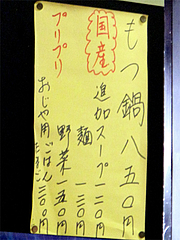 もつ鍋八五〇円
国産
進加スープ一二〇円
麺一三〇円
野菜一五〇円
プリプリ
おじや用ごはん
たまご三〇〇円